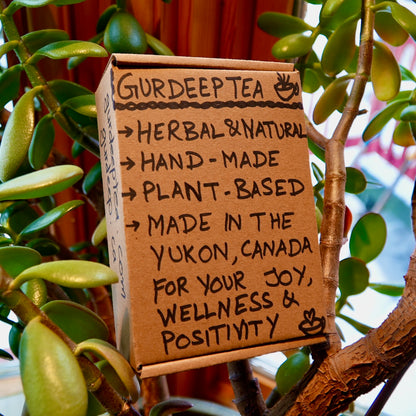 GURDEEP TEA
→ HERBAL & NATURAL
→ HAND-MADE
→ PLANT-BASED
→ MADE IN THE
YUKON, CANADA
FOR YOUR JOY,
WELLNESS &
POSITIVITY